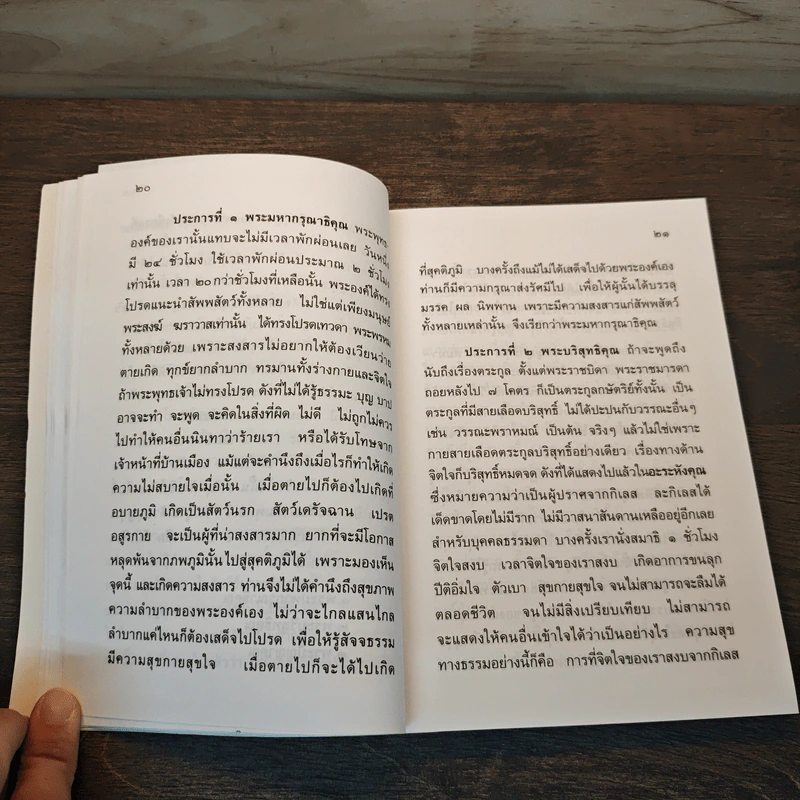 ๒๐
ประการที่ ๑ พระมหากรุณาธิคุณ พระพุทธ-
องค์ของเรานั้นแทบจะไม่มีเวลาพักผ่อนเลย วันหนึ่ง
มี ๒๔ ชั่วโมง ใช้เวลาพักผ่อนประมาณ ๒ ชั่วโมง
เท่านั้น เวลา ๒๐ กว่าชั่วโมงที่เหลือนั้น พระองค์ได้ทรง
โปรดแนะนำสัพพสัตว์ทั้งหลาย ไม่ใช่แต่เพียงมนุษย์
พระสงฆ์ ฆราวาสเท่านั้น ได้ทรงโปรดเทวดา พระพรหม
ทั้งหลายด้วย เพราะสงสารไม่อยากให้ต้องเวียนว่าย
ตายเกิด ทุกข์ยากลำบาก ทรมานทั้งร่างกายและจิตใจ
ถ้าพระพุทธเจ้าไม่ทรงโปรด ดังที่ไม่ได้รู้ธรรมะ บุญ บาป
อาจจะทำ จะพูด จะคิดในสิ่งที่ผิด ไม่ดี ไม่ถูกไม่ควร
ไปทำให้คนอื่นนินทาว่าร้ายเรา หรือได้รับโทษจาก
เจ้าหน้าที่บ้านเมือง แม้แต่จะคำนึงถึงเมื่อไรก็ทำให้เกิด
ความไม่สบายใจเมื่อนั้น เมื่อตายไปก็ต้องไปเกิดที่
อบายภูมิ เกิดเป็นสัตว์นรก สัตว์เดรัจฉาน เปรต
อสูรกาย จะเป็นผู้ที่น่าสงสารมาก ยากที่จะมีโอกาส
หลุดพ้นจากภพภูมินั้นไปสู่สุคติภูมิได้ เพราะมองเห็น
จุดนี้ และเกิดความสงสาร ท่านจึงไม่ได้คำนึงถึงสุขภาพ
ความลำบากของพระองค์เอง ไม่ว่าจะไกลแสนไกล
ลำบากแค่ไหนก็ต้องเสด็จไปโปรด เพื่อให้รู้สัจจธรรม
มีความสุขกายสุขใจ เมื่อตายไปก็จะได้ไปเกิด
๒๑
ที่สุคติภูมิ บางครั้งถึงแม้ไม่ได้เสด็จไปด้วยพระองค์เอง
ท่านก็มีความกรุณาส่งรัศมีไป เพื่อให้ผู้นั้นได้บรรลุ
มรรค ผล นิพพาน เพราะมีความสงสารแก่สัพพสัตว์
ทั้งหลายเหล่านั้น จึงเรียกว่าพระมหากรุณาธิคุณ
ประการที่ ๒ พระบริสุทธิคุณ ถ้าจะพูดถึง
นับถึงเรื่องตระกูล ตั้งแต่พระราชบิดา พระราชมารดา
ถอยหลังไป ๗ โคตร ก็เป็นตระกูลกษัตริย์ทั้งนั้น เป็น
ตระกูลที่มีสายเลือดบริสุทธิ์ ไม่ได้ปะปนกับวรรณะอื่นๆ
เช่น วรรณะพราหมณ์ เป็นต้น จริงๆ แล้วไม่ใช่เพราะ
กายสายเลือดตระกูลบริสุทธิ์อย่างเดียว เรื่องทางด้าน
จิตใจก็บริสุทธิ์หมดจด ดังที่ได้แสดงไปแล้วในอะระหังคุณ
ซึ่งหมายความว่าเป็นผู้ปราศจากกิเลส ละกิเลสได้
เด็ดขาดโดยไม่มีราก ไม่มีวาสนาสันดานเหลืออยู่อีกเลย
สำหรับบุคคลธรรมดา บางครั้งเรานั่งสมาธิ ๑ ชั่วโมง
จิตใจสงบ เวลาจิตใจของเราสงบ เกิดอาการขนลุก
ปีติอิ่มใจ ตัวเบา สุขกายสุขใจ จนไม่สามารถจะลืมได้
ตลอดชีวิต จนไม่มีสิ่งเปรียบเทียบ ไม่สามารถ
จะแสดงให้คนอื่นเข้าใจได้ว่าเป็นอย่างไร ความสุข
ทางธรรมอย่างนี้ก็คือ การที่จิตใจของเราสงบจากกิเลส